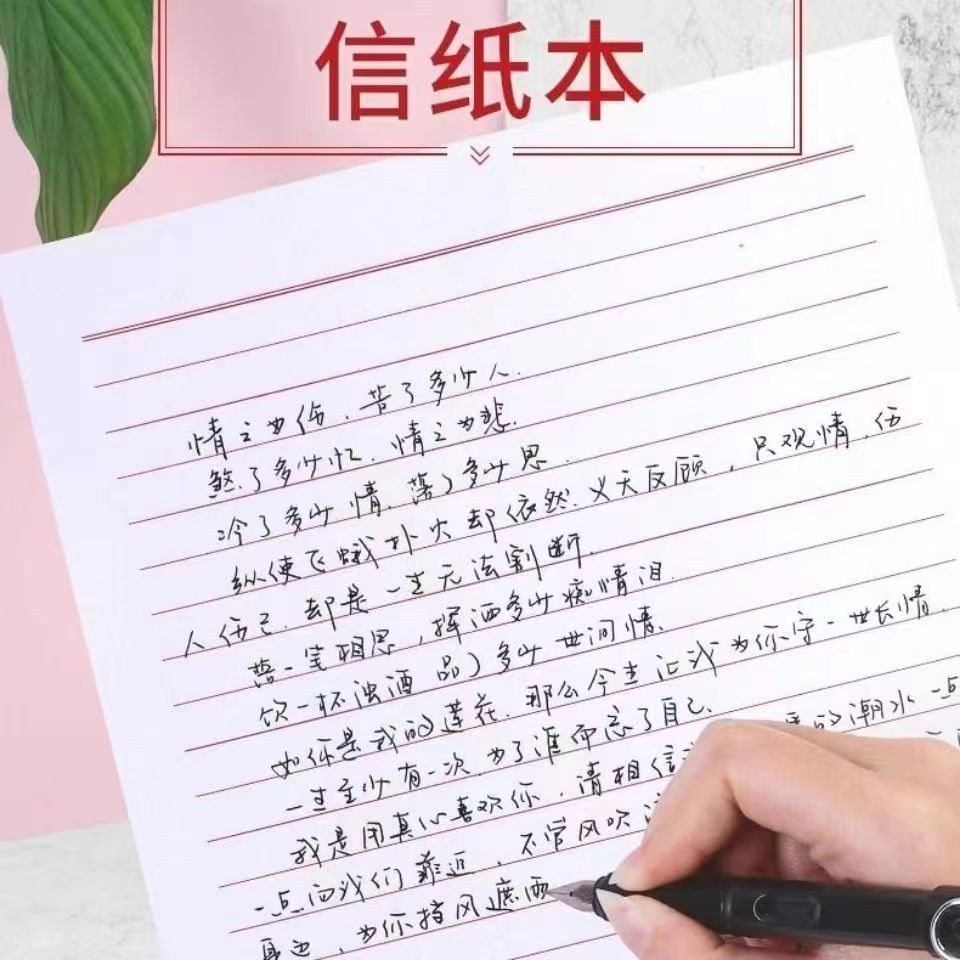 信纸本
情之为伤,苦了多少人.
煞了多少忆.情之为悲.
冷了多少情.落了多少思.
纵使飞蛾扑火却依然.义无反顾,只观情.伤
人伤己.却是一生无法割断.
落一笔相思,挥洒多少痴情泪.
饮一杯浊酒品了多少世间情.
如你是我的莲花.那么今生让我为你守一世长情.
一生至少有一次.为了谁而忘了自己.
我是用真心喜欢你,请相信 的潮水一点
一点向我们靠近,不管风吹
身边,为你挡风遮雨